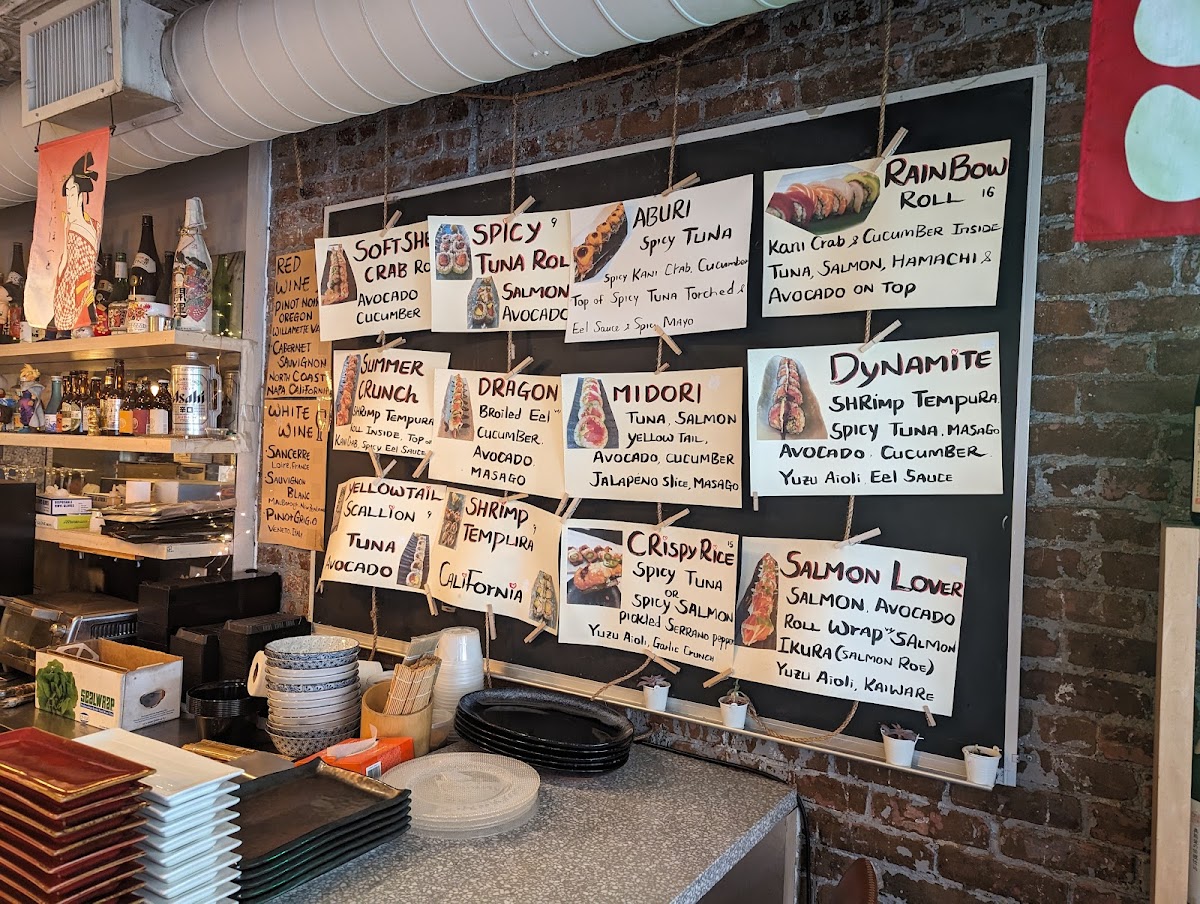 RED
WINE
PINOT NOIR
OREGON
WILLAMETTE VA
CABERNET
SAUVIGNON
NORTH COAST
NAPA, CALIFORNIA
WHITE
WINE
SANCERRE
LOIRE, FRANCE
SAUVIGNON
BLANC
PINOT GRIGIO
VENETO, ITALY
SOFT SHE
CRAB RO
AVOCADO
CUCUMBER
SPICY 9
TUNA ROL
SALMON
AVOCADO
ABURI
SPICY TUNA
SPICY KANI CRAB, CUCUMBER
TOP OF SPICY TUNA TORCHED &
EEL SAUCE & SPICY MAYO
RAINBOW
ROLL 16
KANI CRAB & CUCUMBER INSIDE
TUNA, SALMON, HAMACHI &
AVOCADO ON TOP
SUMMER
CRUNCH
SHRIMP TEMPURA
ROLL INSIDE, TOP OF
KANI CRAB, SPICY EEL SAUCE
DRAGON
BROILED EEL
CUCUMBER.
AVOCADO.
MASAGO
MIDORI
TUNA, SALMON
YELLOW TAIL,
AVOCADO, CUCUMBER
JALAPENO SLICE, MASAGO
DYNAMITE
SHRIMP TEMPURA.
SPICY TUNA, MASAGO
AVOCADO. CUCUMBER.
YUZU AIOLI. EEL SAUCE
YELLOWTAIL
SCALLION 9
TUNA
AVOCADO
SHRIMP
TEMPURA
CALIFORNIA
CRISPY RICE 15
SPICY TUNA
OR
SPICY SALMON
PICKLED SERRANO PEPPER
YUZU AIOLI, GARLIC CRUNCH
SALMON LOVER
SALMON, AVOCADO
ROLL WRAP W/ SALMON
IKURA (SALMON ROE)
YUZU AIOLI, KAIWARE
Asahi
辛口
SEALWRAP